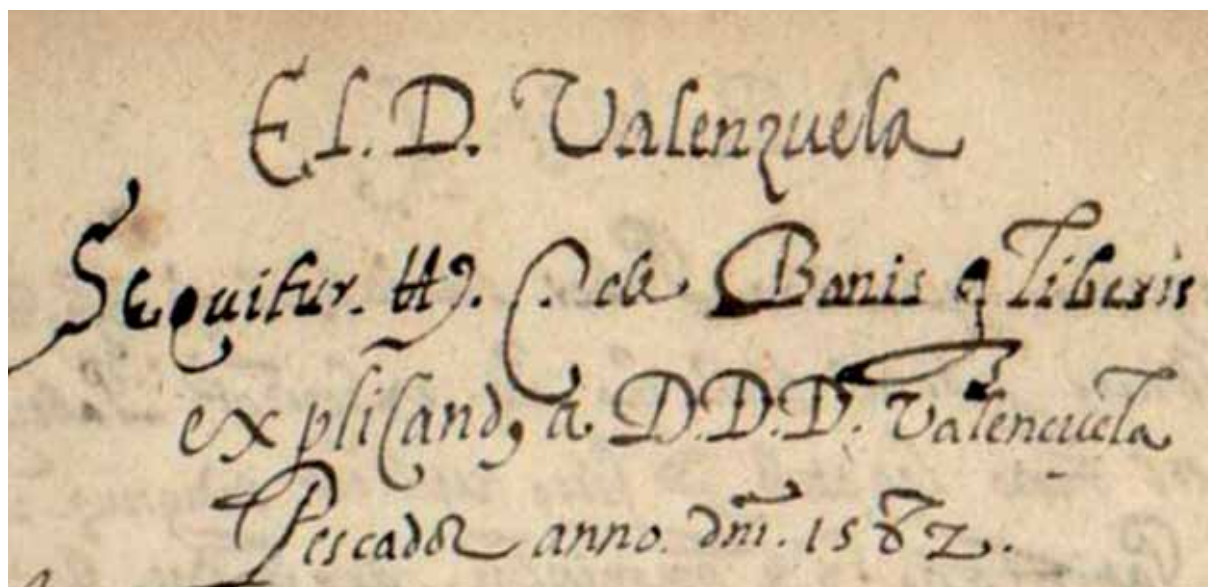 El. D. Valenzuela
Sequitur. tt9. C. de Bonis q̃ liberis
explicand9 a D.D.D. Valençuela
Pescador anno. dm̃. 1582.